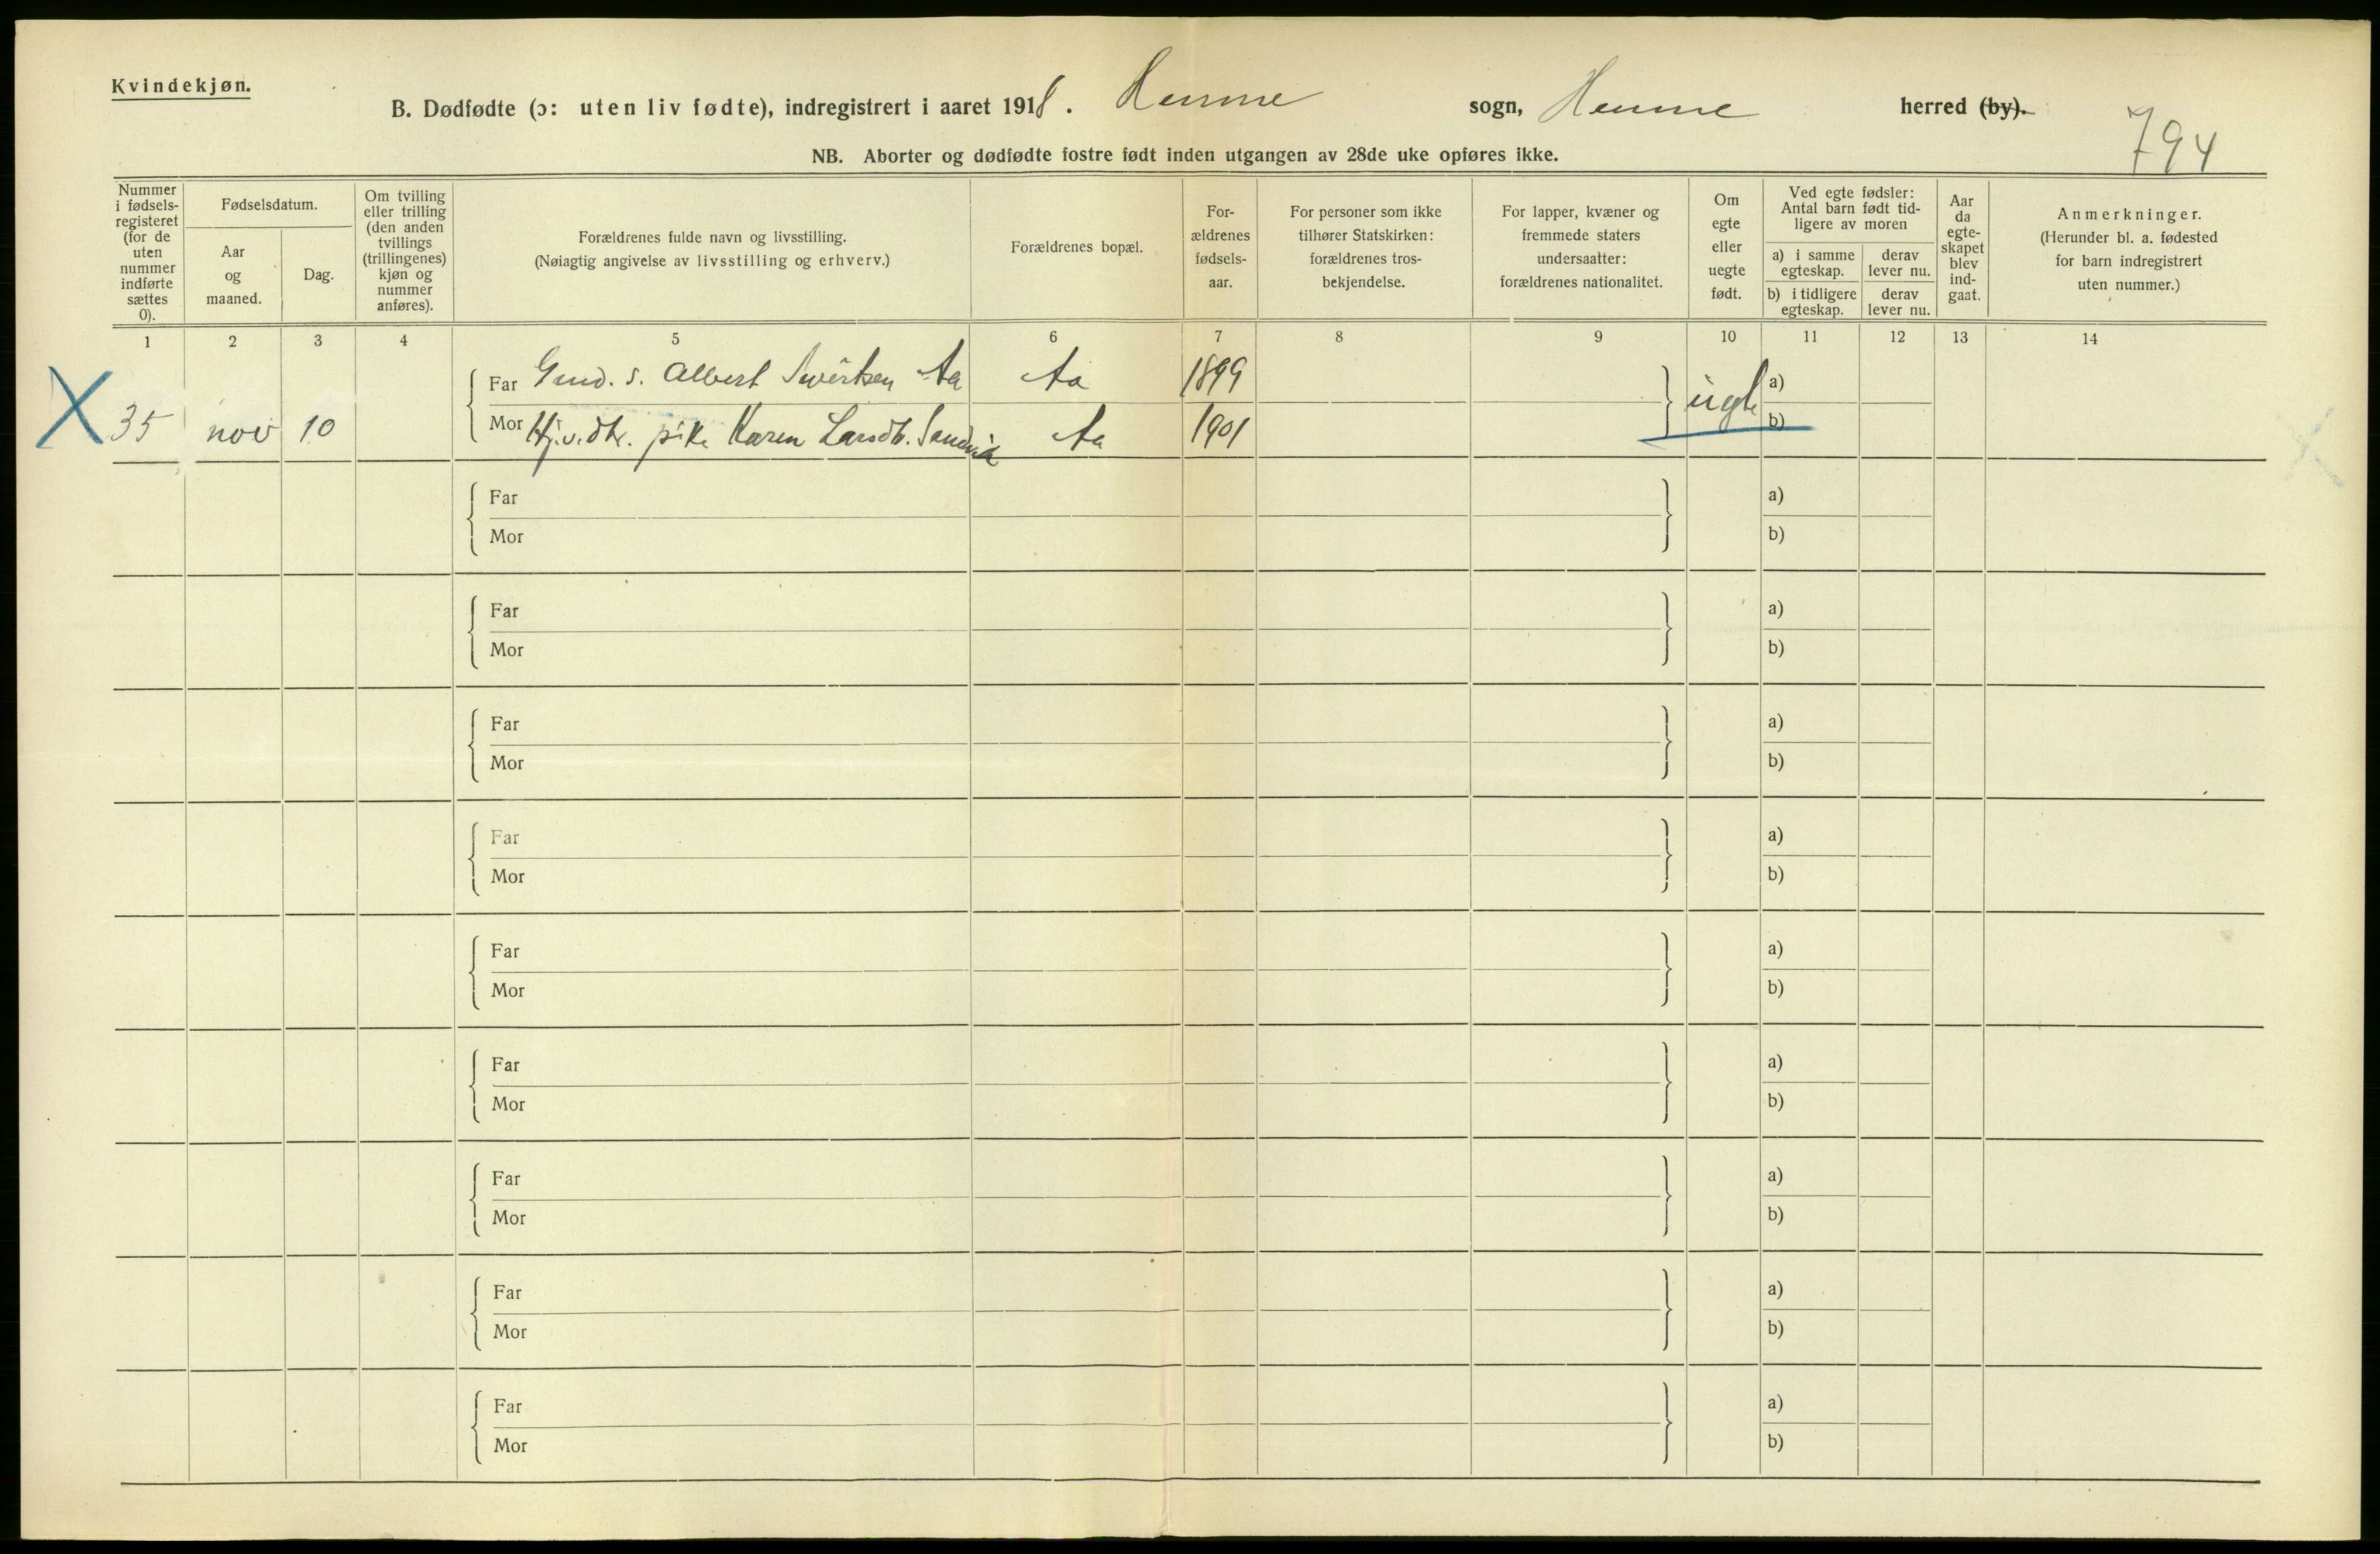 Kvindekjøn.
B. Dødfødte (ɔ: uten liv fødte), indregistrert i aaret 1918. Hemne sogn, Hemne herred (by).
794
NB. Aborter og dødfødte fostre født inden utgangen av 28de uke opføres ikke.
Nummer i fødsels-registeret (for de uten nummer indførte sættes 0).
Fødselsdatum.
Aar og maaned.
Dag.
Om tvilling eller trilling (den anden tvillings (trillingenes) kjøn og nummer anføres).
Forældrenes fulde navn og livsstilling.
(Nøiagtig angivelse av livsstilling og erhverv.)
Forældrenes bopæl.
For-ældrenes fødsels-aar.
For personer som ikke tilhører Statskirken: forældrenes tros-bekjendelse.
For lapper, kvæner og fremmede staters undersaatter: forældrenes nationalitet.
Om egte eller uegte født.
Ved egte fødsler: Antal barn født tid-ligere av moren
a) i samme egteskap.
derav lever nu.
b) i tidligere egteskap.
derav lever nu.
Aar da egte-skapet blev ind-gaat.
Anmerkninger.
(Herunder bl. a. fødested for barn indregistrert uten nummer.)
1 2 3 4 5 6 7 8 9 10 11 12 13 14
X 35 nov 10
Far Gmd. s. Albert Sivertsen Aa Aa 1899 a)
Mor Hj.v. dtr. pike Karen Larsdt. Sandvik Aa 1901 uegte b)
Far a)
Mor b)
Far a)
Mor b)
Far a)
Mor b)
Far a)
Mor b)
Far a)
Mor b)
Far a)
Mor b)
Far a)
Mor b)
Far a)
Mor b)
Far a)
Mor b)